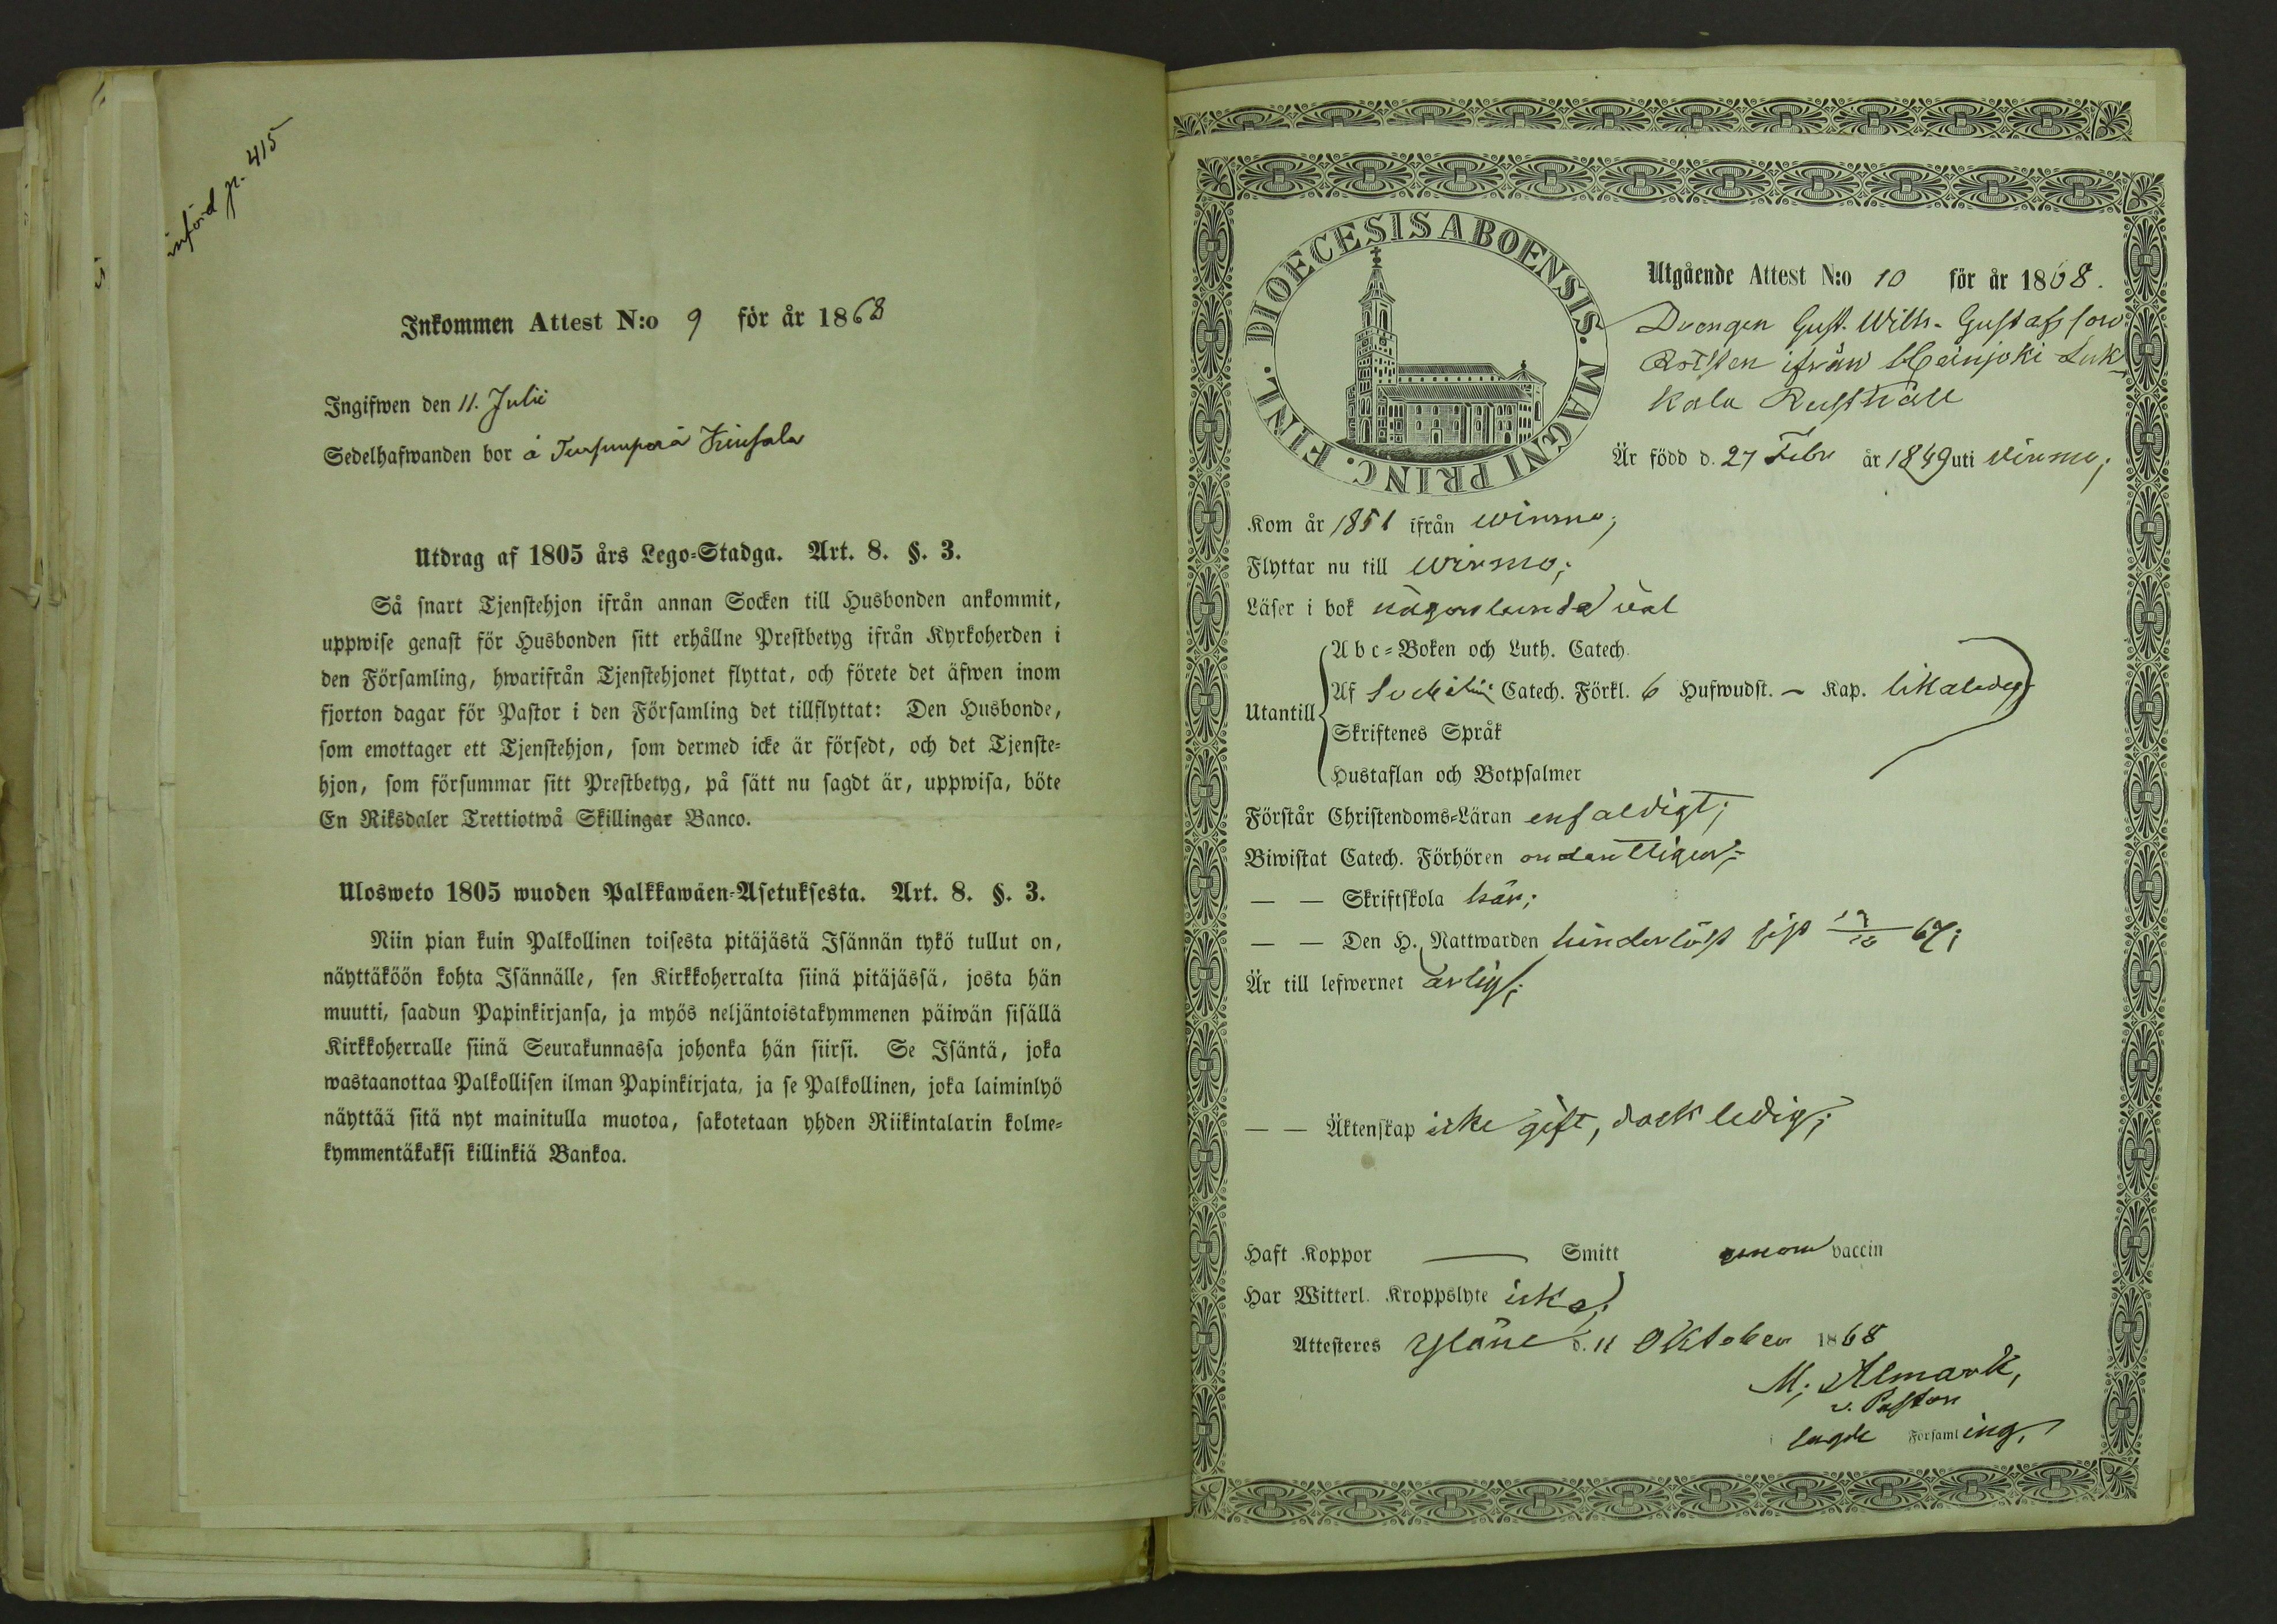 införd p. 415
Inkommen Attest N:o 9 för år 1868
Ingifwen den 11. Julii
Sedelhafwanden bor å
Utdrag af 1805 års Lego-Stadga. Art. 8. §. 3.
Så snart Tjenstehjon ifrån annan Socken till Husbonden ankommit,
uppwise genast för Husbonden sitt erhållne Prestbetyg ifrån Kyrkoherden i
den Församling, hwarifrån Tjenstehjonet flyttat, och förete det äfwen inom
fjorton dagar för Pastor i den Församling det tillflyttat: Den Husbonde,
som emottager ett Tjenstehjon, som dermed icke är försedt, och det Tjenste-
hjon, som försummar sitt Prestbetyg, på sätt nu sagdt är, uppwisa, böte
En Riksdaler Trettiotwå Skillingar Banco.
Ulosweto 1805 wuoden Palkkawäen-Asetuksesta. Art. 8. §. 3.
Niin pian kuin Palkollinen toisesta pitäjästä Isännän tykö tullut on,
näyttäköön kohta Isännälle, sen Kirkkoherralta siinä pitäjässä, josta hän
muutti, saadun Papinkirjansa, ja myös neljäntoistakymmenen päiwän sisällä
Kirkkoherralle siinä Seurakunnassa johonka hän siirsi. Se Isäntä, joka
wastaanottaa Palkollisen ilman Papinkirjata, ja se Palkollinen, joka laiminlyö
näyttää sitä nyt mainitulla muotoa, sakotetaan yhden Riikintalarin kolme-
kymmentäkaksi killinkiä Bankoa.
DIOECESIS ABOENSIS. MAGNI PRINC. FINL.
Utgående Attest N:o 10 för år 1868.
Drengen Gust. Wilh. Gustafsson
ifrån Heinjoki Suk
kola Rusthåll
Är född d. 27 Febr år 1849 uti Virmo;
Kom år 1851 ifrån Wirmo;
Flyttar nu till Wirmo;
Läser i bok någorlunda väl
Utantill
Abc-Boken och Luth. Catech.
Af Catech. Förkl. 6 Hufwudst. – Kap. likaledes
Skriftenes Språk
Hustaflan och Botpsalmer
Förstår Christendoms-Läran enfaldigt;
Biwistat Catech. Förhören ordentligen;
— — Skriftskola här;
— — Den H. Nattwarden hinderlöst sist 67;
Är till lefwernet ärlig;
— — Äktenskap icke gift, dock ledig;
Haft Koppor — Smitt genom vaccin
Har Witterl. Kroppslyte icke;
Attesteres Yläne d. 11 Oktober 1868
M; Almark,
v. Pastor
i sagde Församling,